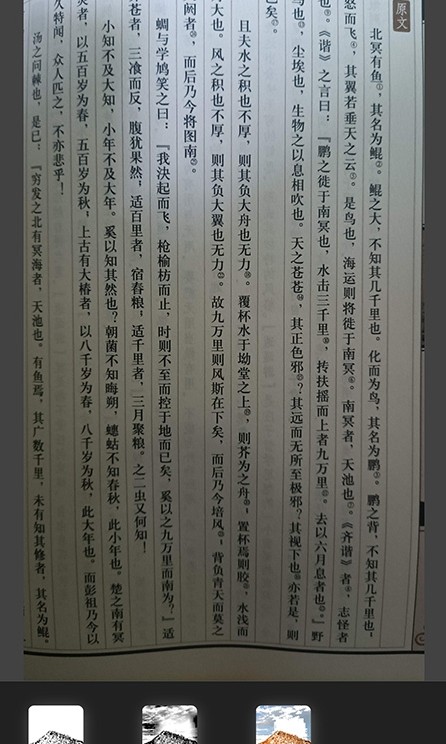 原文
北冥有鱼①，其名为鲲②。鲲之大，不知其几千里也。化而为鸟，其名为鹏③。鹏之背，不知其几千里也；
怒而飞④，其翼若垂天之云⑤。是鸟也，海运则将徙于南冥⑥。南冥者，天池也⑦。《齐谐》者⑧，志怪者
也⑨。《谐》之言曰：『鹏之徙于南冥也，水击三千里⑩，抟扶摇而上者九万里⑪。去以六月息者也⑫。』野
马也⑬，尘埃也，生物之以息相吹也。天之苍苍⑭，其正色邪⑮？其远而无所至极邪？其视下也⑯亦若是，则
已矣⑰。
且夫水之积也不厚，则其负大舟也无力⑱。覆杯水于坳堂之上⑲，则芥为之舟⑳，置杯焉则胶，水浅而
大也。风之积也不厚，则其负大翼也无力。故九万里则风斯在下矣，而后乃今培风，背负青天而莫之
阏者，而后乃今将图南。
蜩与学鸠笑之曰：『我決起而飞，枪榆枋而止，时则不至而控于地而已矣，奚以之九万里而南为？』适
苍者，三飡而反，腹犹果然，适百里者，宿舂粮；适千里者，三月聚粮。之二虫又何知！
小知不及大知，小年不及大年。奚以知其然也？朝菌不知晦朔，蟪蛄不知春秋，此小年也。楚之南有冥
灵者，以五百岁为春，五百岁为秋，上古有大椿者，以八千岁为春，八千岁为秋，此大年也。而彭祖乃今以
久特闻，众人匹之，不亦悲乎！
汤之问棘也，是已：『穷发之北有冥海者，天池也。有鱼焉，其广数千里，未有知其修者，其名为鲲。